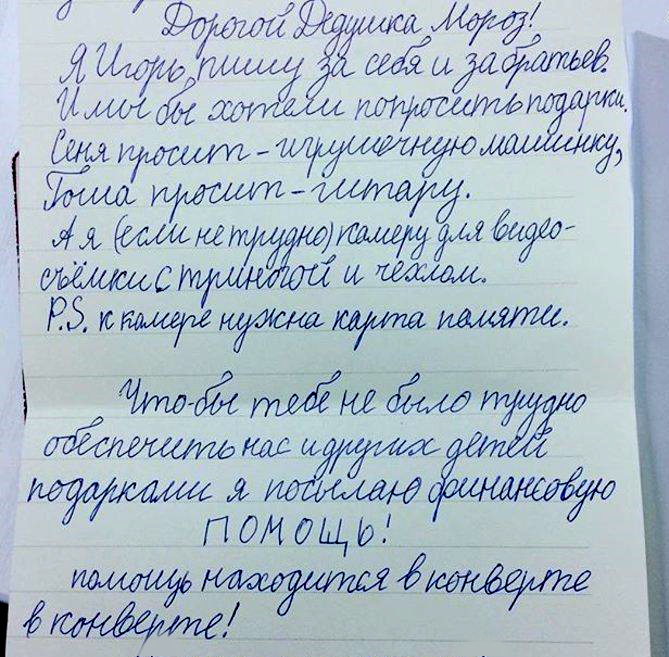 Дорогой Дедушка Мороз!
Я Игорь, пишу за себя и за братьев.
И мы бы хотели попросить подарки.
Сеня просит - игрушечную машинку,
Гоша просит - гитару.
А я (если не трудно) камеру для видео-
съёмки с триногой и чехлом.
P.S. к камере нужна карта памяти.
Что-бы тебе не было трудно
обеспечить нас и других детей
подарками я посылаю финансовую
ПОМОЩЬ!
помощь находится в конверте
в конверте!